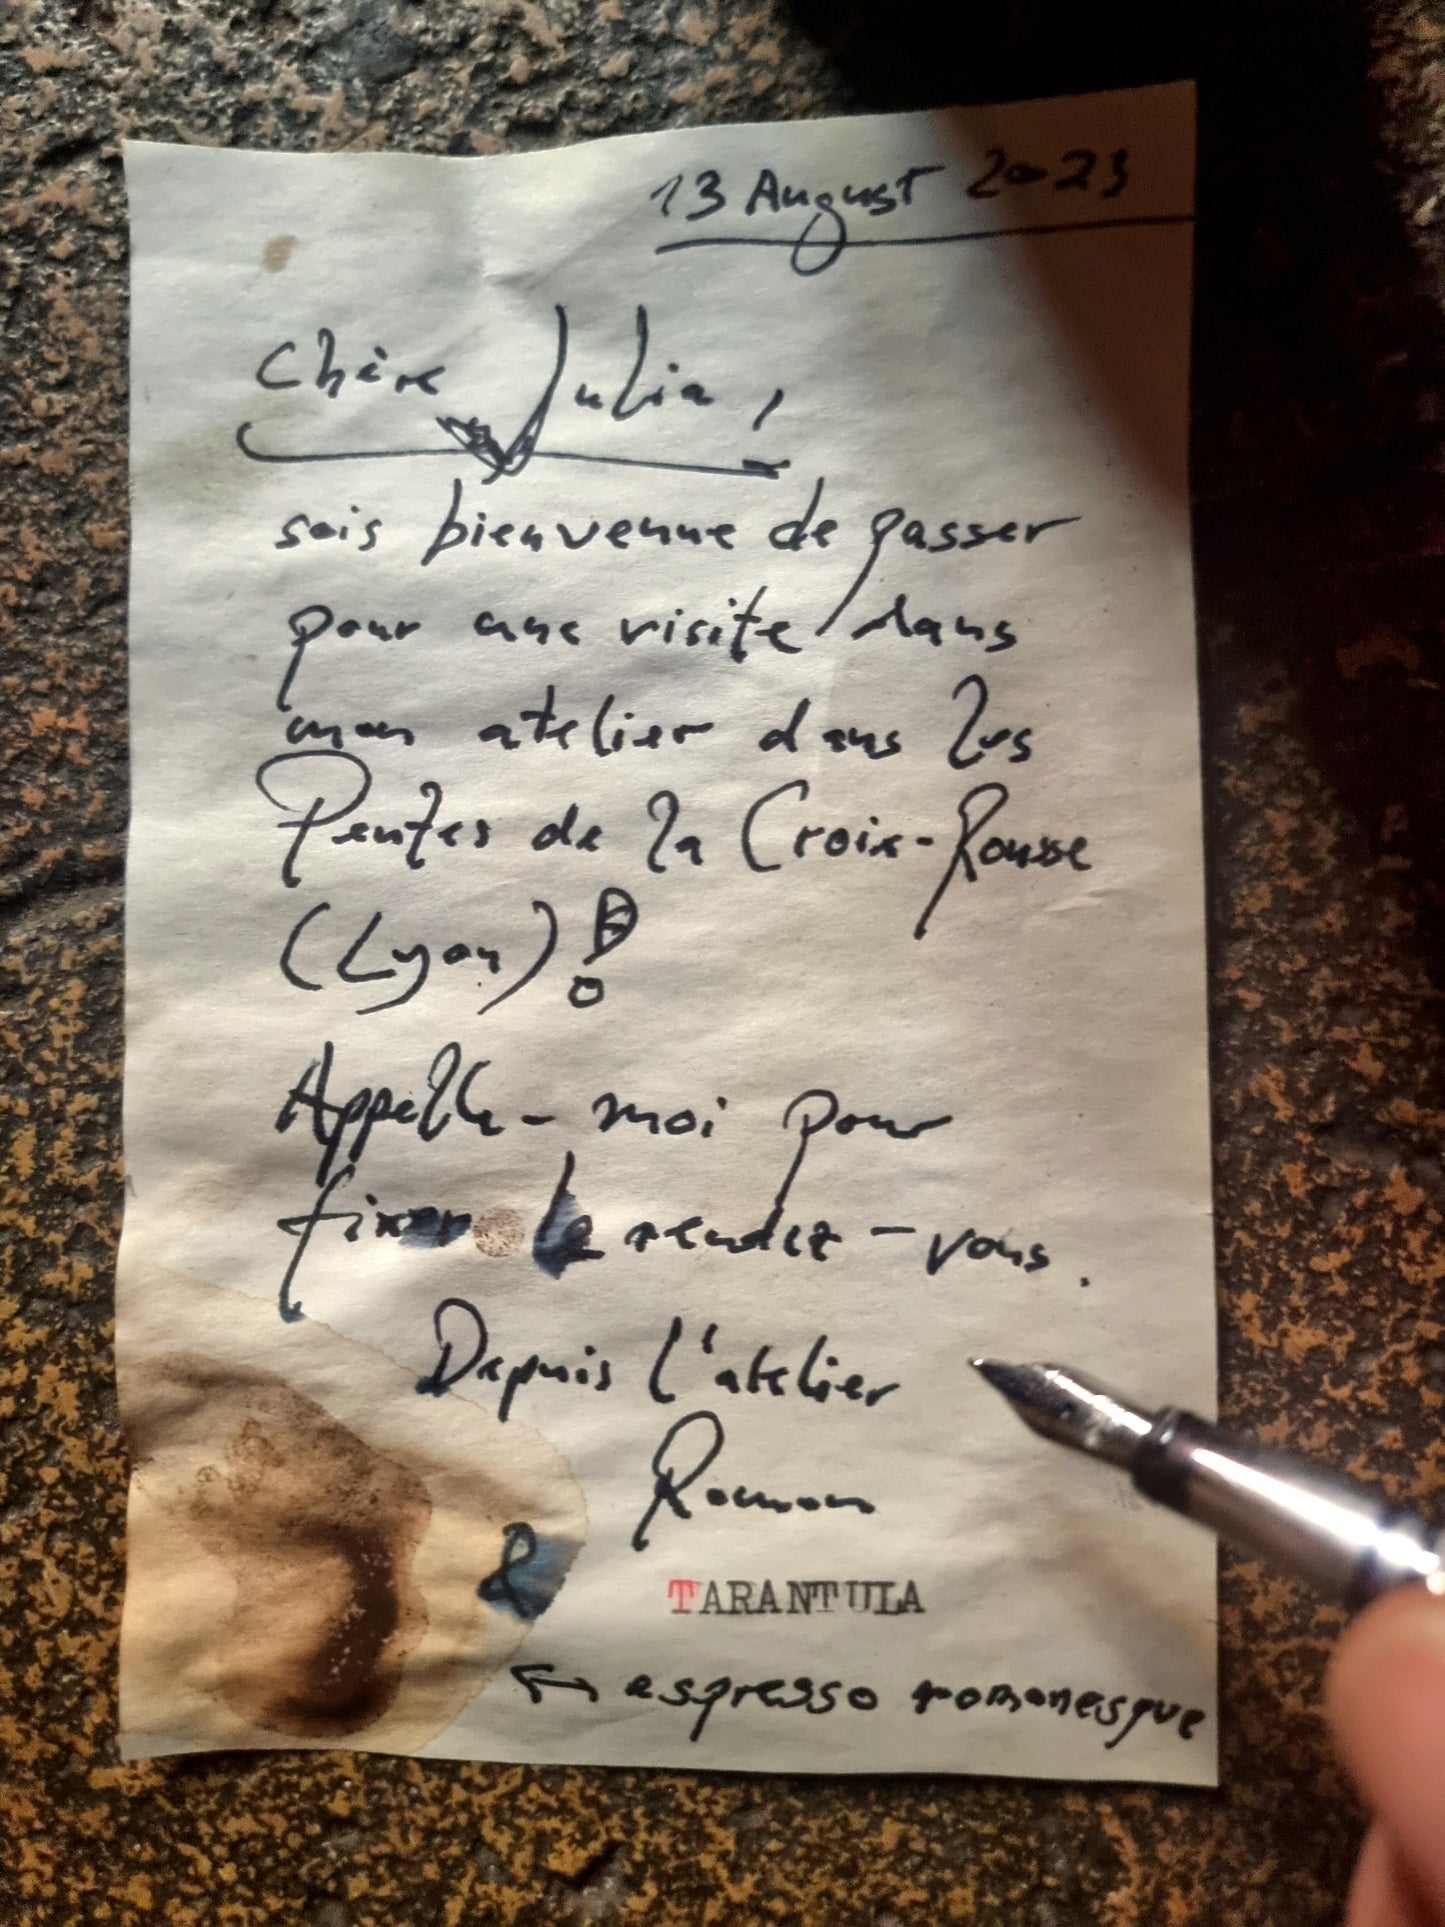 13 August 2023
Chère Julia,
sois bienvenue de passer
pour une visite dans
mon atelier dans les
Pentes de la Croix-Rousse
(Lyon)!
Appelle-moi pour
fixer le rendez-vous.
Depuis l'atelier
Roman
& TARANTULA
← espresso romanesque